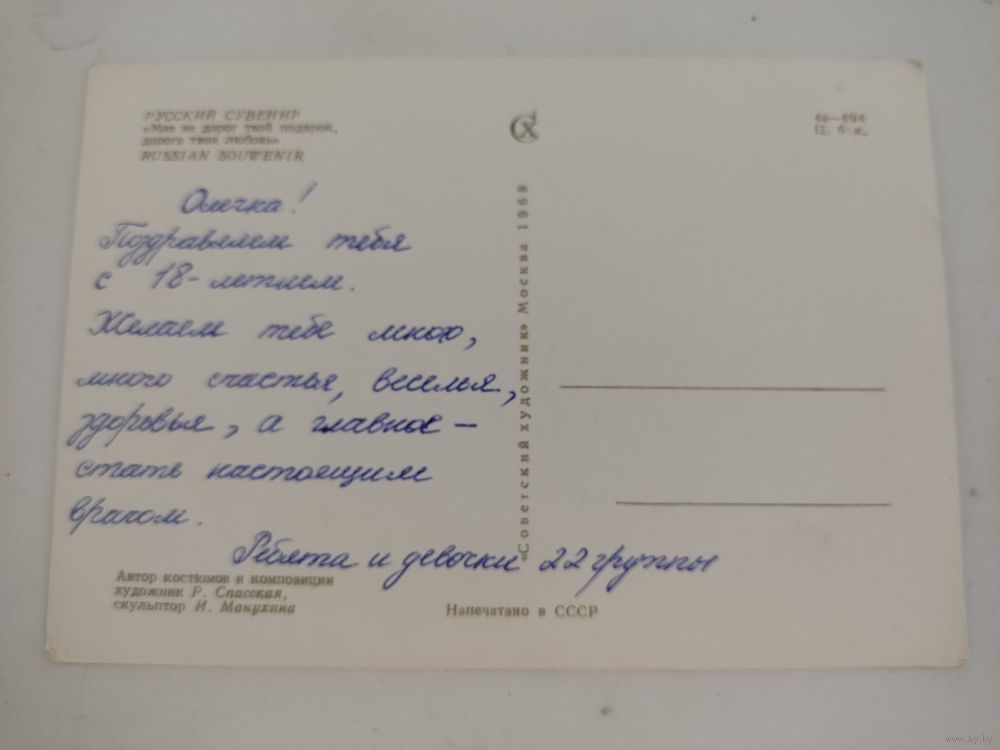 РУССКИЙ СУВЕНИР
«Мне не дорог твой подарок,
дорога твоя любовь»
RUSSIAN SOUWENIR
4в—894
Ц. к.
Олечка!
Поздравляем тебя
с 18-летием.
Желаем тебе много,
много счастья, веселья,
здоровья, а главное —
стать настоящим
врачом.
Ребята и девочки 22 группы
«Советский художник» Москва 1968
Автор костюмов и композиции
художник Р. Спасская,
скульптор И. Манухина
Напечатано в СССР
www.ay.by